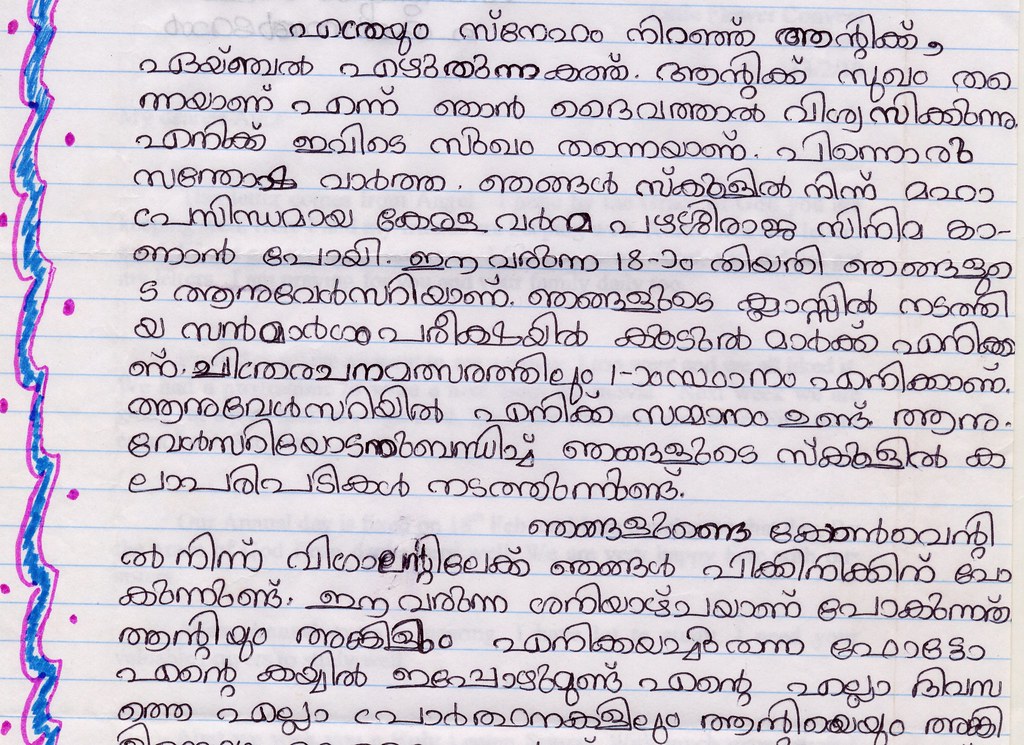 ഏറ്റേയും സ്നേഹം നിറഞ്ഞ ആന്റിക്ക്,
ഏയ്ഞ്ചൽ എഴുതുന്ന കത്ത്. ആന്റിക്ക് സുഖം തന്നെ
ന്നയാണ് എന്ന് ഞാൻ ദൈവത്താൽ വിശ്വസിക്കുന്നു.
എനിക്ക് ഇവിടെ സുഖം തന്നെയാണ്. പിന്നൊരു
സന്തോഷ വാർത്ത. ഞങ്ങൾ സ്കൂളിൽ നിന്ന് മഹാ
പ്രസിദ്ധമായ കേരള വർമ്മ പഴശ്ശിരാജ സിനിമ കാ-
ണാൻ പോയി. ഈ വരുന്ന 18-ാം തിയതി ഞങ്ങളുടെ
ട ആനുവേൾസറിയാണ്. ഞങ്ങളുടെ ക്ലാസ്സിൽ നടത്തി
യ സൻമാർഗ പരീക്ഷയിൽ കൂടുതൽ മാർക്ക് എനിക്കാ
ണ്. ചിത്രരചനമത്സരത്തിലും 1-ാംസ്ഥാനം എനിക്കാണ്.
ആനുവേൾസറിയിൽ എനിക്ക് സമ്മാനം ഉണ്ട്. ആനു-
വേൾസറിയോടനുബന്ധിച്ച് ഞങ്ങളുടെ സ്കൂളിൽ ക
ലാപരിപടികൾ നടത്തുന്നുണ്ട്.
ഞങ്ങളുടെ കോൺവെന്റി
ൽ നിന്ന് വിഗാലന്റിലേക്ക് ഞങ്ങൾ പിക്കിനിക്കിന് പോ
കുന്നുണ്ട്. ഈ വരുന്ന ശനിയാഴ്ചയാണ് പോകുന്നത്.
ആന്റിയും അങ്കിളും എനിക്കയച്ചുതന്ന ഫോട്ടോ
എന്റെ കയ്യിൽ ഇപ്പോഴുമുണ്ട് എന്റെ എല്ലാ ദിവസ
ത്തെ എല്ലാ പ്രാർത്ഥനകളിലും ആന്റിയെയും അങ്കി